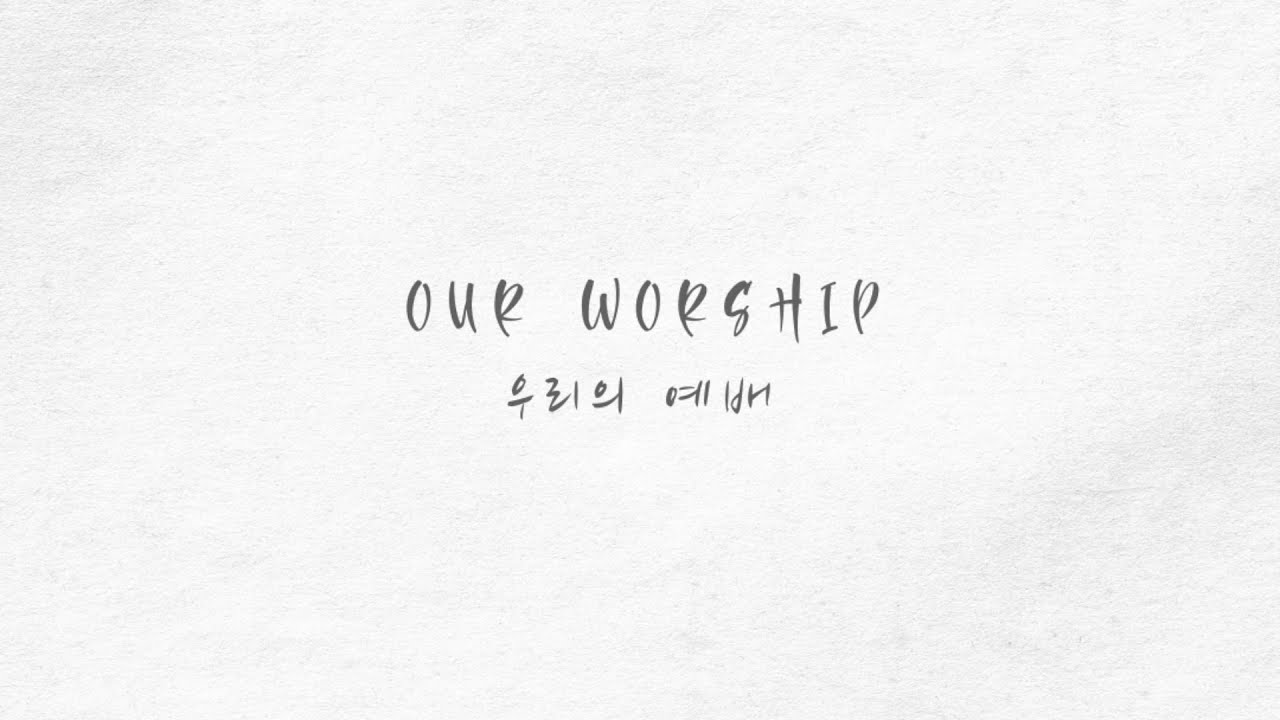 OUR WORSHIP
우리의 예배